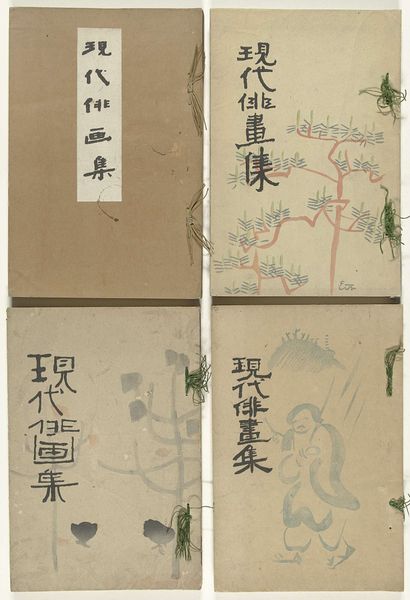 現代俳画集
現代俳畫集
現代俳画集
現代俳畫集